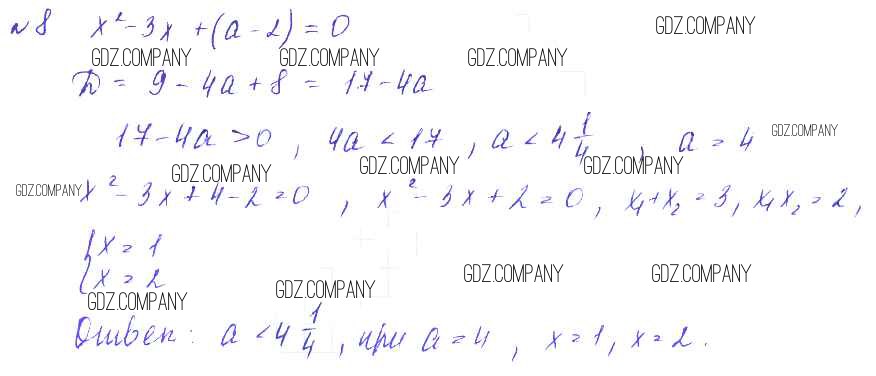 №8 x² - 3x + (a - 2) = 0 GDZ.COMPANY
GDZ.COMPANY GDZ.COMPANY GDZ.COMPANY
D = 9 - 4a + 8 = 17 - 4a
17 - 4a > 0, 4a < 17, a < 4 1/4, a = 4 GDZ.COMPANY
GDZ.COMPANY GDZ.COMPANY GDZ.COMPANY
GDZ.COMPANY x² - 3x + 4 - 2 = 0, x² - 3x + 2 = 0, x₁ + x₂ = 3, x₁x₂ = 2,
{x = 1
{x = 2 GDZ.COMPANY GDZ.COMPANY
GDZ.COMPANY GDZ.COMPANY
Ответ: a < 4 1/4, при a = 4, x = 1, x = 2.